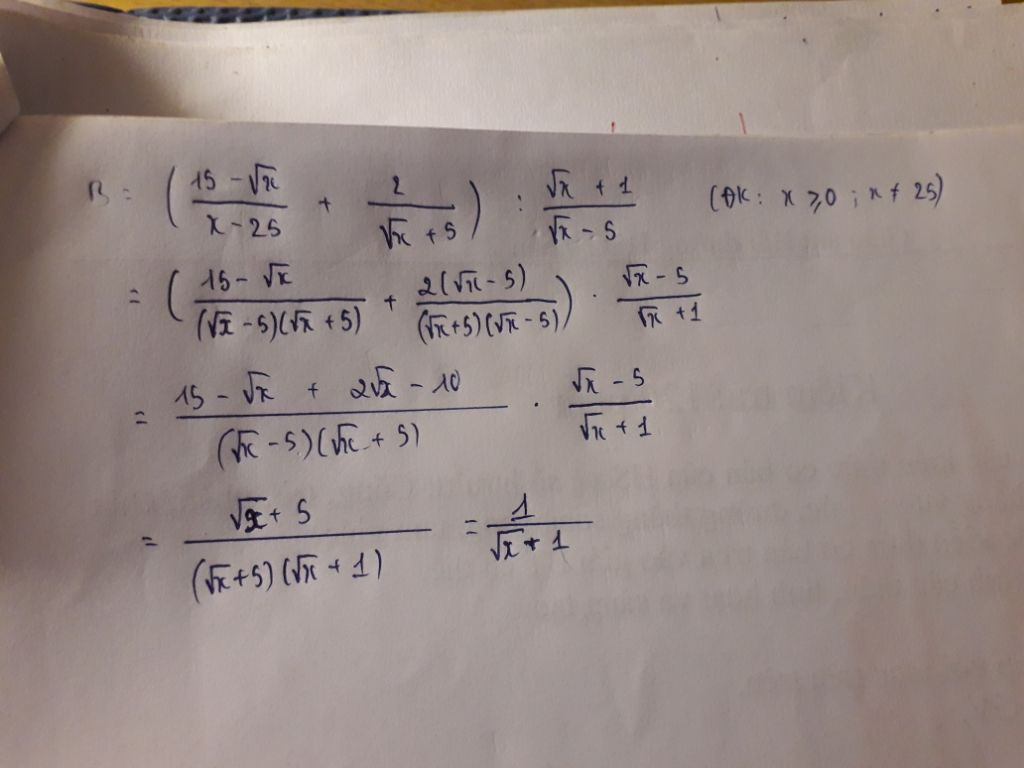 B = ( (15 - √x)/(x - 25) + 2/(√x + 5) ) : (√x + 1)/(√x - 5) (ĐK: x ⩾ 0 ; x ≠ 25)
= ( (15 - √x)/((√x - 5)(√x + 5)) + 2(√x - 5)/((√x + 5)(√x - 5)) ) · (√x - 5)/(√x + 1)
= (15 - √x + 2√x - 10)/((√x - 5)(√x + 5)) · (√x - 5)/(√x + 1)
= (√x + 5)/((√x + 5)(√x + 1)) = 1/(√x + 1)